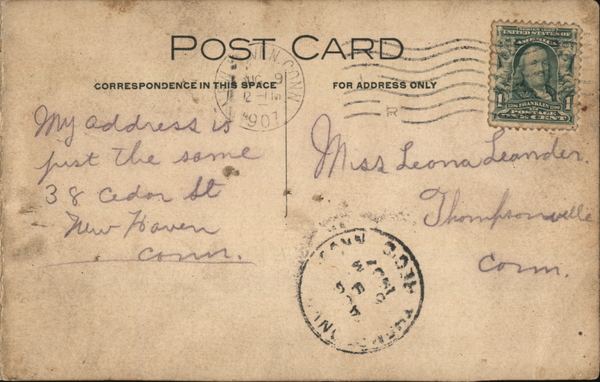 POST CARD
CORRESPONDENCE IN THIS SPACE
FOR ADDRESS ONLY
CONN
AUG 9
12-
1907
R
UNITED STATES OF
AMERICA
1 FRANKLIN 1
POSTAGE
ONE CENT
My address is
just the same
38 Cedar St
New Haven
Conn.
Miss Leona Leander.
Thompsonville
Conn.
CONN